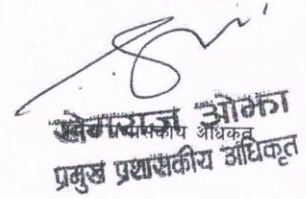 ओझा
प्रमुख प्रशासकीय अधिकृत
प्रमुख प्रशासकीय अधिकृत